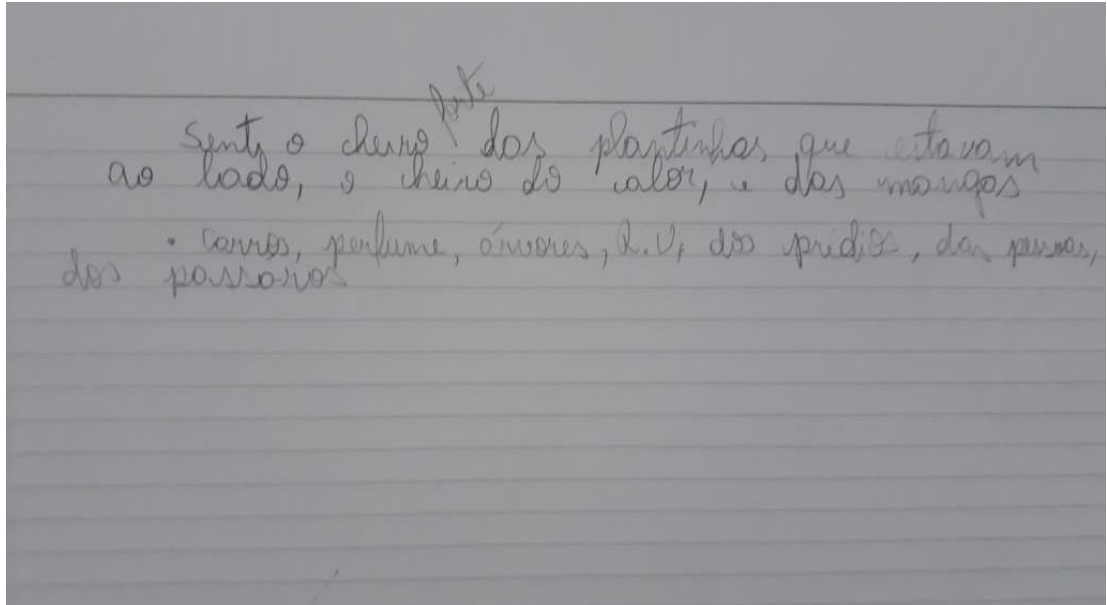 forte
Senti o cheiro das plantinhas que estavam
ao lado, o cheiro do calor, e das mangas
• carros, perfume, árvores, R.U, dos predios, das pessoas,
dos passaros